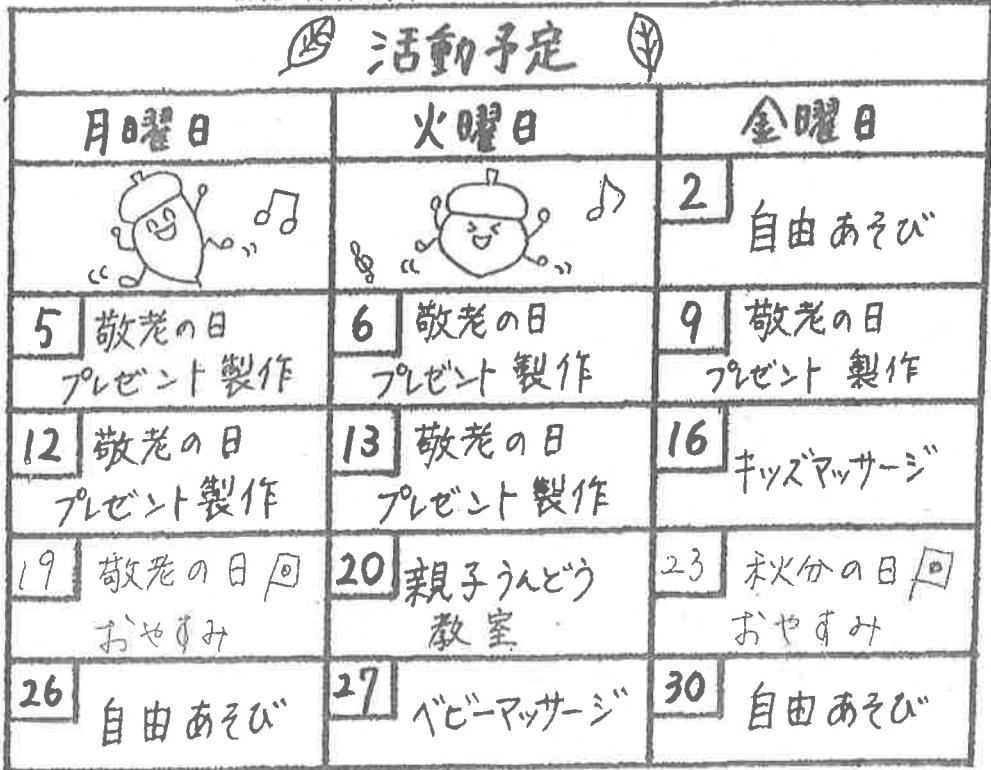 活動予定
月曜日 火曜日 金曜日
2
自由あそび
5 敬老の日
プレゼント製作
6 敬老の日
プレゼント製作
9 敬老の日
プレゼント製作
12 敬老の日
プレゼント製作
13 敬老の日
プレゼント製作
16
キッズマッサージ
19 敬老の日
おやすみ
20 親子うんどう
教室
23 秋分の日
おやすみ
26
自由あそび
27
ベビーマッサージ
30
自由あそび